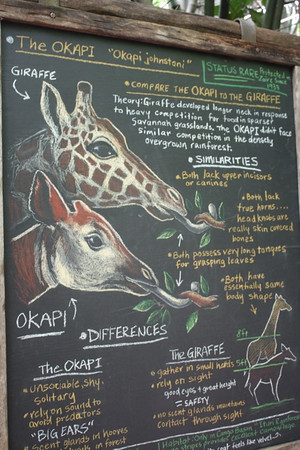 The OKAPI "Okapi johnstoni"
STATUS RARE Protected
since
1933
GIRAFFE
• COMPARE THE OKAPI TO THE GIRAFFE
Theory: Giraffe developed longer neck in response
to heavy competition for food in sparse
savannah grasslands, the OKAPI didnt face
Similar competition in the densely
overgrown rainforest.
• SIMILARITIES
• Both lack upper incisors
or canines
• Both lack
true horns....
head knobs are
really skin covered
bones
• Both possess very long tongues
for grasping leaves
• Both have
essentially same
body shape
OKAPI
• DIFFERENCES
The OKAPI
• unsociable, shy,
solitary
• rely on sound to
avoid predators
"BIG EARS"
• Scent glands in hooves
in forest
The GIRAFFE
• gather in small herds
• rely on sight
good eyes, + great height
= SAFETY
• no scent glands maintains
contact through sight
8ft
5ft
Habitat: Only in Congo Basin
stripes provide excellent
feel like velvet